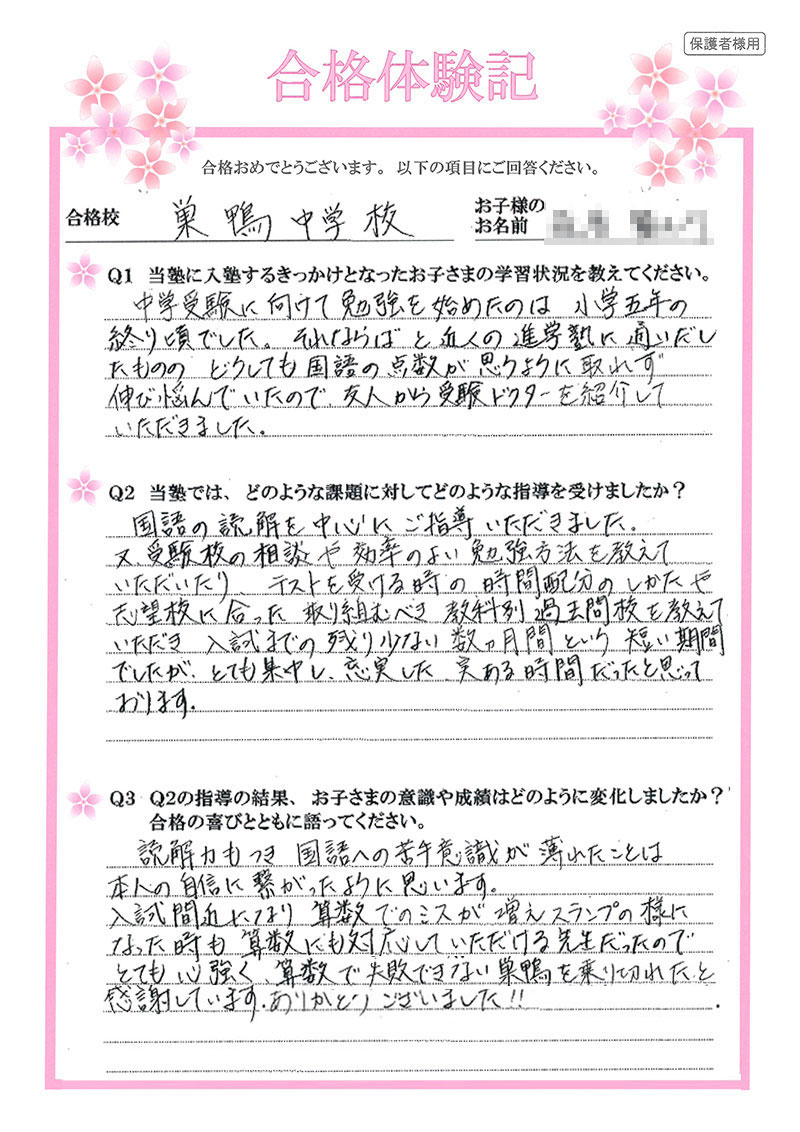 保護者様用
合格体験記
合格おめでとうございます。以下の項目にご回答ください。
合格校 巣鴨中学校
お子様の
お名前
Q1 当塾に入塾するきっかけとなったお子さまの学習状況を教えてください。
中学受験に向けて勉強を始めたのは 小学五年の
終り頃でした。それならばと近くの進学塾に通いだし
たものの どうしても国語の点数が思うように取れず
伸び悩んでいたので、友人から受験ドクターを紹介して
いただきました。
Q2 当塾では、どのような課題に対してどのような指導を受けましたか？
国語の読解を中心にご指導いただきました。
又、受験校の相談や効率のよい勉強方法を教えて
いただいたり、テストを受ける時の時間配分のしかたや
志望校に合った取り組むべき教科別過去問校を教えて
いただき 入試までの残り少ない数ヶ月間という短い期間
でしたが、とても集中し、充実した、実ある時間だったと思って
おります。
Q3 Q2の指導の結果、お子さまの意識や成績はどのように変化しましたか？
合格の喜びとともに語ってください。
読解力もつき 国語への苦手意識が薄れたことは
本人の自信に繋がったように思います。
入試間近になり 算数でのミスが増えスランプの様に
なった時も 算数にも対応していただける先生だったので
とても心強く、算数で失敗できない巣鴨を乗り切れたと
感謝しています。ありがとうございました!!